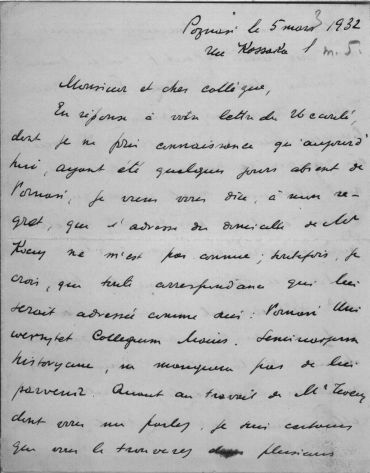 Poznań le 5 mars 1932
Monsieur et cher collègue,
En réponse à votre lettre du 26 écoulé,
dont je ne pris connaissance qu'aujourd'
hui, ayant été quelques jours absent de
Poznań, je viens vous dire, à mon re-
gret, que l'adresse du domicile de Mr
ne m'est pas connue; toutefois, je
crois, que toute correspondance qui lui
serait adressée comme ceci: Poznań Uni
wersytet Collegium Maius. Seminarjum
historyczne, ne manquera pas de lui
parvenir. Quant au travail de Mr
dont vous me parlez, je suis
que vous le trouverez dans plusieurs